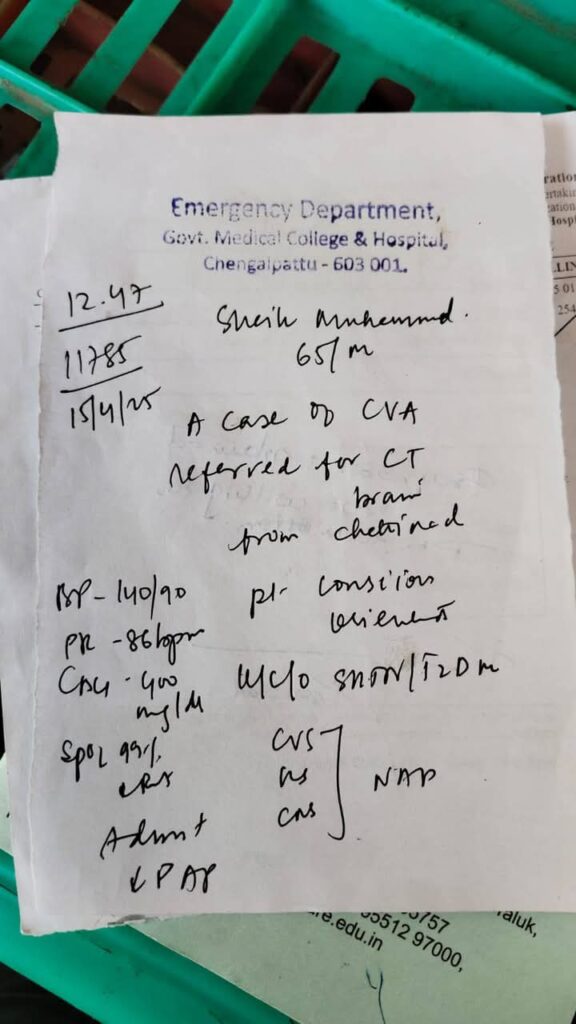 Emergency Department,
Govt. Medical College & Hospital,
Chengalpattu - 603 001.
12.47
Sheik Muhammad.
11785
65/m
15/4/25
A case of CVA
referred for CT
brain
from chettinad
BP - 140/90
pt - conscious
oriented
PR - 86 bpm
CBG - 400
mg/dl
K/C/O SHTN/T2DM
SpO2 99%
RA
CVS
RS
CNS
NAD
Admit
ration
ertakin
zation
Hosp
.LIN
5 01
254
03757
35512 97000,
Taluk,
re.edu.in